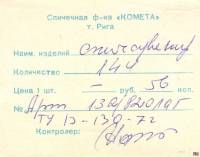 Спичечная ф-ка «КОМЕТА"
т. Рига
Наим. изделий спичсувенир
Количество 144
Цена 1 шт. – руб. 56 коп.
№ Арт 130/820
ТУ 13-139-72
Контролер: